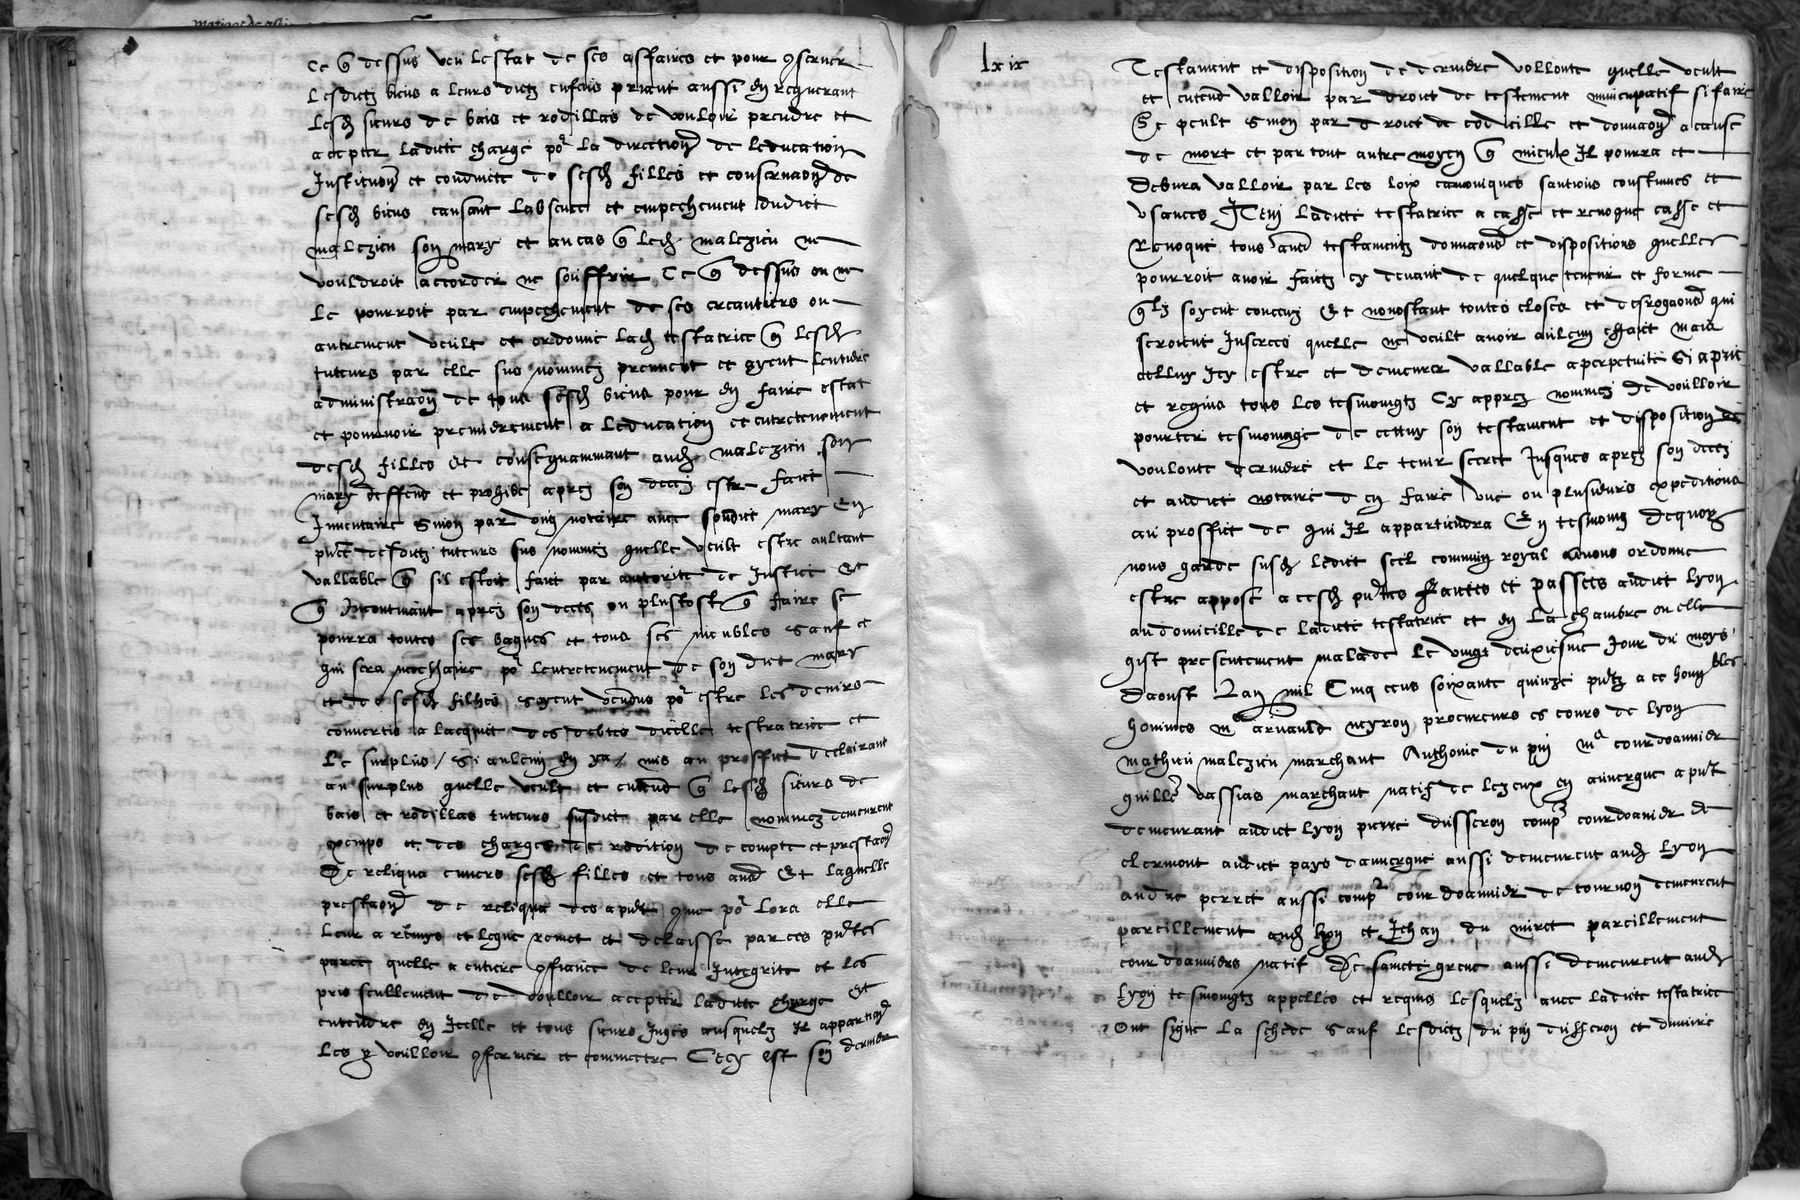 ce q dessus veu lestat de ses affaires et pour gserver
lesdictz biens a leurs dictz enfans priant aussi en requerant
lesd sieurs de bais et rodillas de vouloir prendre et
accepter ladicte charge po la direction de leducation
Institution et conduicte de sesd filles et conservaon de
sesd biens causant labscence et empechement dudict
malezieu son mary et en cas q led malezieu ne
vouldroit accorder ne souffrir ce q dessus ou ne
le pourroit par empechement de ses creantiers ou
autrement veult et ordonne lad testatrice q lesd
tuteurs par elle sus nommez prennent et ayent lentiere
administraon de tous sesd biens pour en faire estat
et pourvoir premierement a leducation et entretenement
desd filles Et consequammant aud malezieu son
mary deffend et prohibe apres son deces estre faict
Inventaire sinon par ung notaire avec sondict mary en
pnce desdictz tuteurs sus nommez quelle veult estre aultant
vallable q sil estoit faict par autorite de Justice Et
q Incontinant apres son deces ou plustost q faire se
pourra toutes ses bagues et tous ses meubles sauf ce
qui sera necessaire po lentretenement de son dict mary
et de sesd filhes soyent vendus po estre les deniers
convertis a lacquict des debtes dicelle testatrice et
le surplus / si aulcun en ya / mis au proffict declairant
au surplus quelle veult et entend q lesd sieurs de
bais et rodillas tuteurs susdict par elle nommez demeurent
exemps et des charges de redition de compte et prestaon
de reliqua envers sesd filles et tous aud Et laquelle
prestaon de reliqua des apnt gme po lora elle
leur a remys et legue remet et delaisse par ces pntes
parce quelle a entiere gfiance de leur Integrite et les
prie seullement de voulloir accepter ladicte charge et
entendre en Icelle et tous sieurs Juges ausquelz Il appartien
les y voulloir gfermer et commettre Cecy est son dernier
lxix
Testament et disposition de derniere vollonte quelle veult
et entend valloir par droict de testement nuncupatif si faire
Se peult sinon par droict de codicille et donnaon a cause
de mort et par tout autre moyen q mieulx Il pourra et
debvra valloir par les loix canoniques sanctions coustumes et
usances Item ladicte testatrice a casse et revoque casse et
Revoque tous aud testamentz donnaons et dispositions quelle
pourroit avoir faictz cy devant de quelque teneur et forme
qlz soyent conceuz Et nonostant toutes closes et desrogaons qui
seroient Inserees quelle ne veult avoir aulcun effaict mais
celluy Icy estre et demeurer vallable a perpetuite Si a prie
et requis tous les tesmoingtz Cy appres nommez de voulloir
pourter tesmoinage de cettuy son testament et disposition de
voulonte derniere et le tenir secret Jusques apres son deces
et audict notaire den faire une ou plusieurs expeditions
au proffict de qui Il appartiendra En tesmoing dequoy
nous garde susd ledict seel commun royal avons ordonne
estre appose a cesd pntes Faictes et passees audict lyon
au domicille de ladicte testatrice et en la chambre ou elle
gist presentement malade le vingt deuxiesme Jour du moys
daoust Lan mil Cinq cens soixante quinze pntz a ce honnbles
hommes me arnauld neyron procureurs es cours de lyon
mathieu malezieu marchant Anthoine du puy me courdoannier
guille vassias marchant natif de lezeux en auvergne a pnt
demeurant audict lyon pierre dusseron comp courdoanier de
clermont audict pays dauvergne aussi demeurent aud Lyon
andre perret aussi comp courdoannier de tournon demeurent
pareillement aud lyon et Jehan du miret pareillement
courdoanniers natif de saincte grene aussi demeurent aud
lyon tesmoingtz appelles et requis lesquelz avec ladicte testatrice
Ont signe la schede sauf lesdictz du puy dusseron et dumire